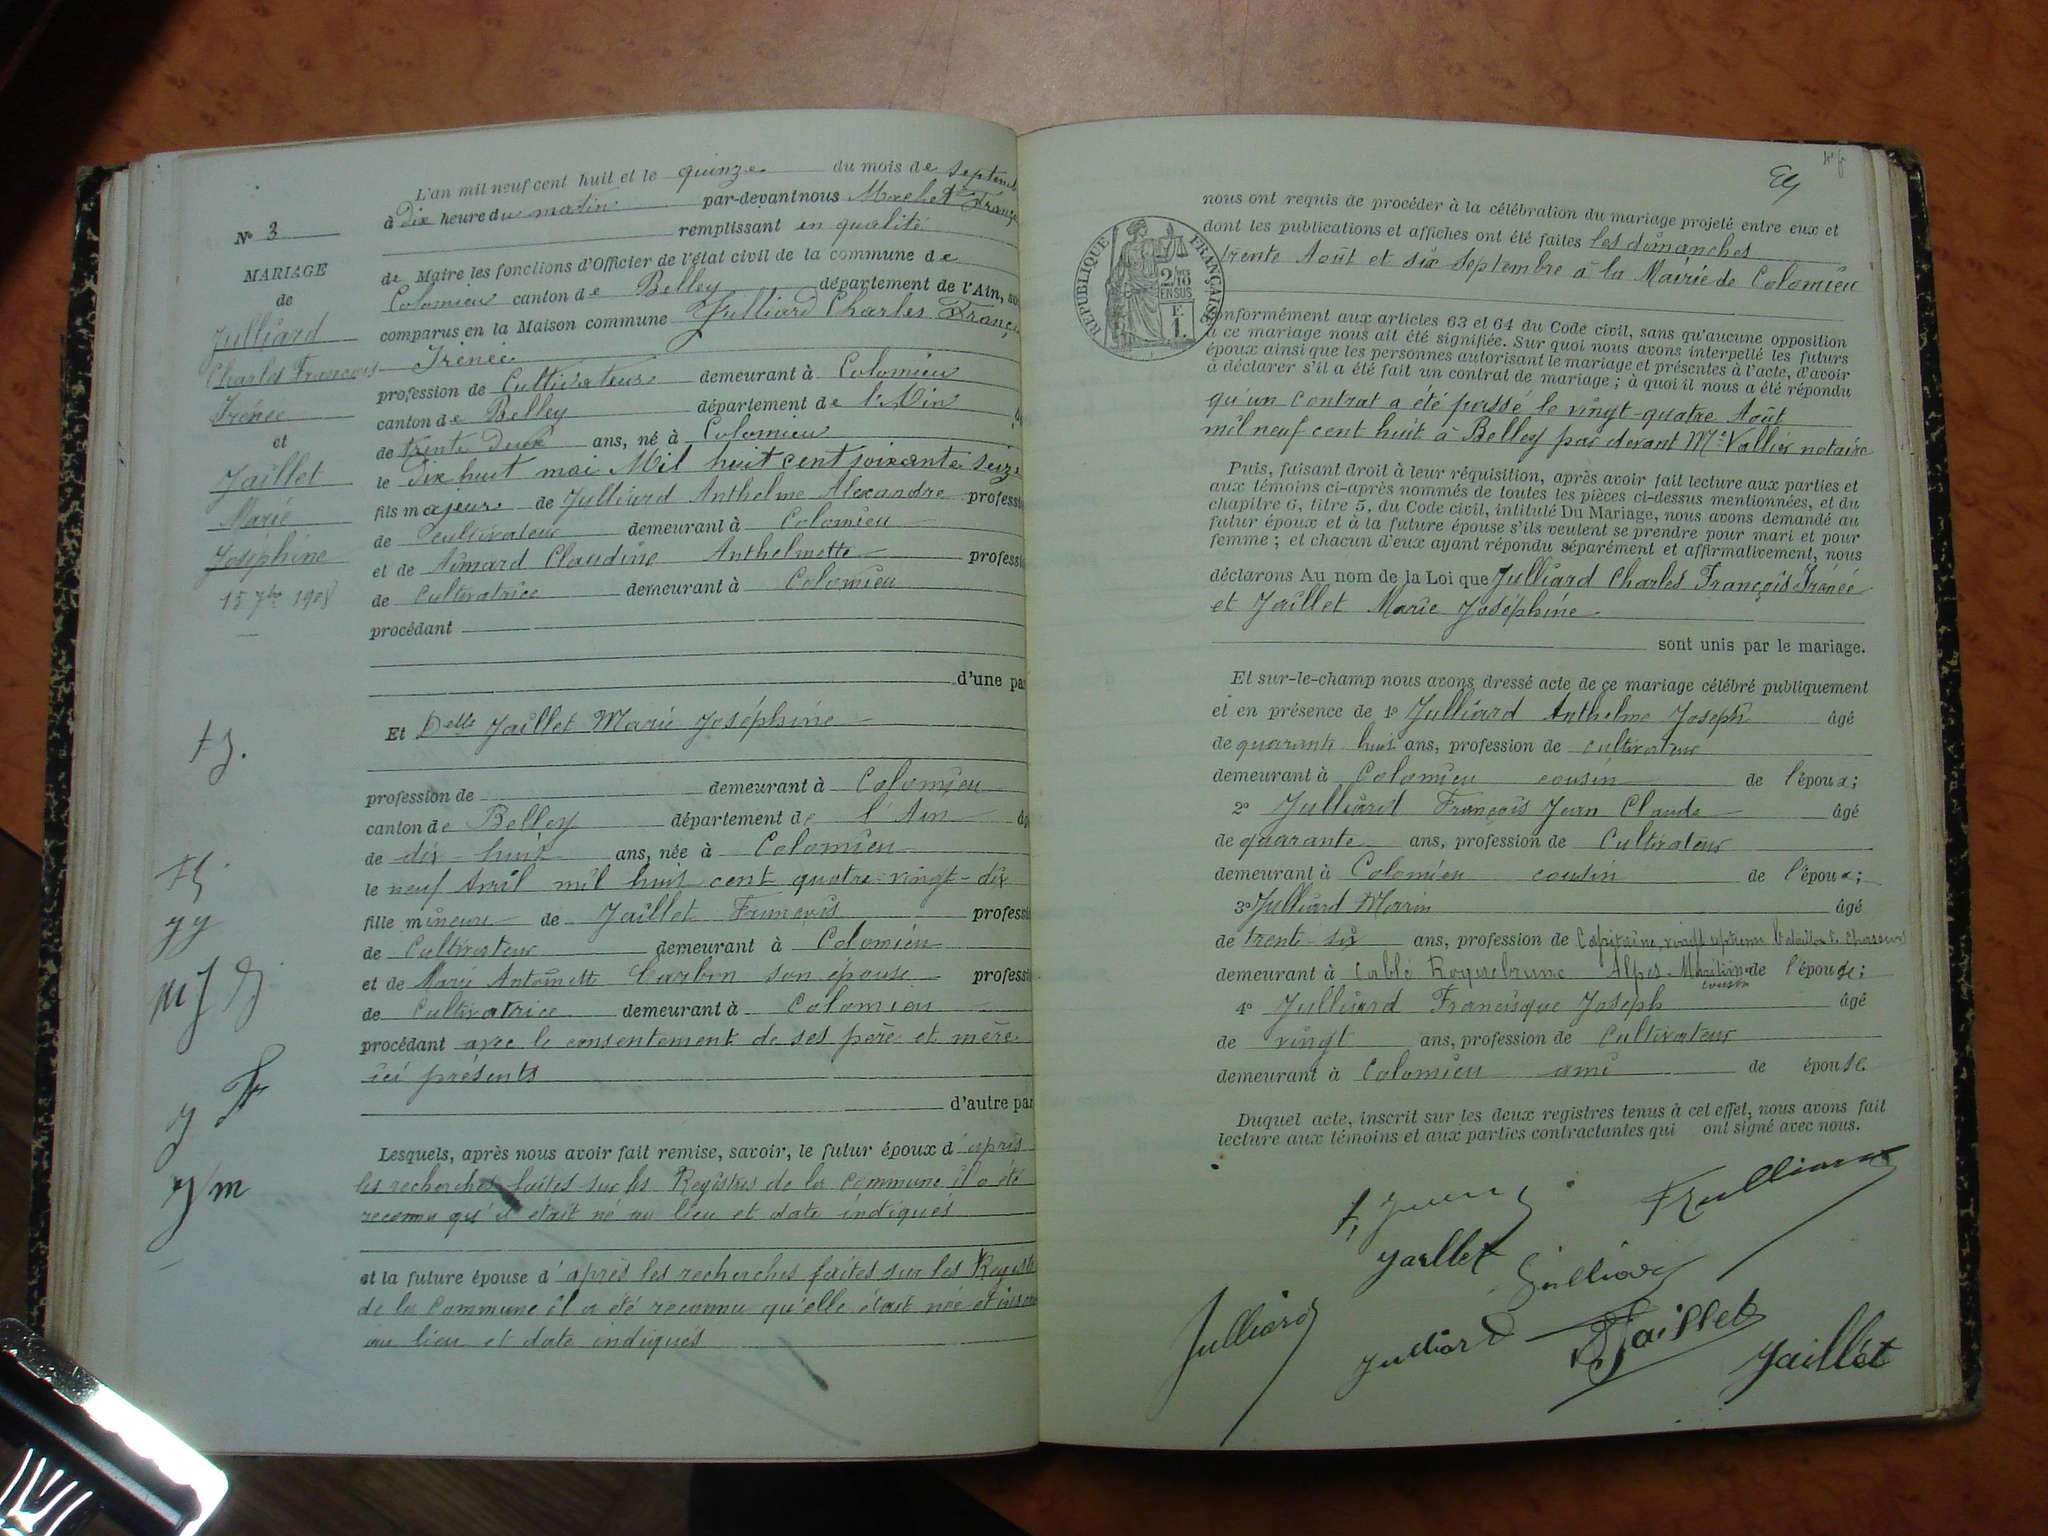 L'an mil neuf cent huit et le quinze du mois de septemb
à Dix heure du matin par-devant nous Franço
remplissant en qualité
N° 3
MARIAGE
de
Julliard
Charles François
Irénée
et
Jaillet
Marie
Joséphine
15 7bre 1908
de Maire les fonctions d'Officier de l'état civil de la commune de
Colomieu canton de Belley département de l'Ain, so
comparus en la Maison commune Julliard Charles Franço
Irénée
profession de Cultivateur demeurant à Colomieu
canton de Belley département de l'Ain
de trente Deux ans, né à Colomieu
le Dix huit mai Mil huit cent soixante seize
fils majeur de Julliard Anthelme Alexandre professi
de cultivateur demeurant à Colomieu
et de Aimard Claudine Anthelmette professi
de Cultivatrice demeurant à Colomieu
procédant
d'une par
Et Delle Jaillet Marie Joséphine
profession de demeurant à Colomieu
canton de Belley département de l'Ain âg
de dix-huit ans, née à Colomieu
le neuf Avril mil huit cent quatre-vingt-dix
fille mineure de Jaillet François professi
de Cultivateur demeurant à Colomieu
et de Marie Antoinette Carbon son épouse professi
de Cultivatrice demeurant à Colomieu
procédant avec le consentement de ses père et mère
ici présents
d'autre par
Lesquels, après nous avoir fait remise, savoir, le futur époux d'après
les recherches faites sur les Registres de la commune il a été
reconnu qu'il était né au lieu et date indiqués
et la future épouse d'après les recherches faites sur les Regist
de la commune il a été reconnu qu'elle était née et
au lieu et date indiqués
nous ont requis de procéder à la célébration du mariage projeté entre eux et
dont les publications et affiches ont été faites les dimanches
trente Août et six septembre à la Mairie de Colomieu
RÉPUBLIQUE FRANÇAISE
2/10 EN SUS
F. 1.
conformément aux articles 63 et 64 du Code civil, sans qu'aucune opposition
à ce mariage nous ait été signifiée. Sur quoi nous avons interpellé les futurs
époux ainsi que les personnes autorisant le mariage et présentes à l'acte, d'avoir
à déclarer s'il a été fait un contrat de mariage ; à quoi il nous a été répondu
qu'un contrat a été passé le vingt-quatre Août
mil neuf cent huit à Belley par devant Me Vallier notaire
Puis, faisant droit à leur réquisition, après avoir fait lecture aux parties et
aux témoins ci-après nommés de toutes les pièces ci-dessus mentionnées, et du
chapitre 6, titre 5, du Code civil, intitulé Du Mariage, nous avons demandé au
futur époux et à la future épouse s'ils veulent se prendre pour mari et pour
femme ; et chacun d'eux ayant répondu séparément et affirmativement, nous
déclarons Au nom de la Loi que Julliard Charles François Irénée
et Jaillet Marie Joséphine
sont unis par le mariage.
Et sur-le-champ nous avons dressé acte de ce mariage célébré publiquement
et en présence de 1° Julliard Anthelme Joseph âgé
de quarante huit ans, profession de cultivateur
demeurant à Colomieu cousin de l'époux;
2° Julliard François Jean Claude âgé
de quarante ans, profession de Cultivateur
demeurant à Colomieu cousin de l'époux;
3° Julliard Marin âgé
de trente-six ans, profession de Capitaine, vingt septième bataillon de chasseurs
demeurant à Roquebrune Alpes-Maritimes de l'épouse;
cousin
4° Julliard Francisque Joseph âgé
de vingt ans, profession de Cultivateur
demeurant à Colomieu ami de épouse
Duquel acte, inscrit sur les deux registres tenus à cet effet, nous avons fait
lecture aux témoins et aux parties contractantes qui ont signé avec nous.
Julliard
Jaillet
Julliard
Julliard
Julliard
Jaillet
Jaillet